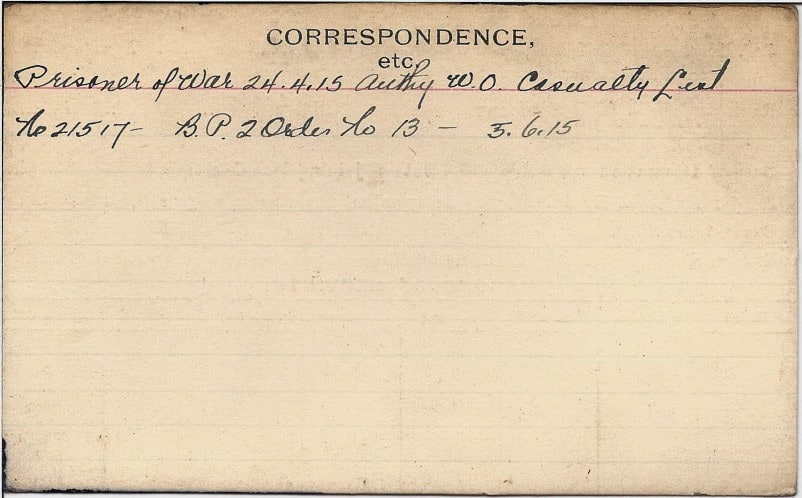 CORRESPONDENCE,
etc.
Prisoner of War 24.4.15 Authy W.O. Casualty List
No 21517- B.P. 2 Order No 13 - 5.6.15